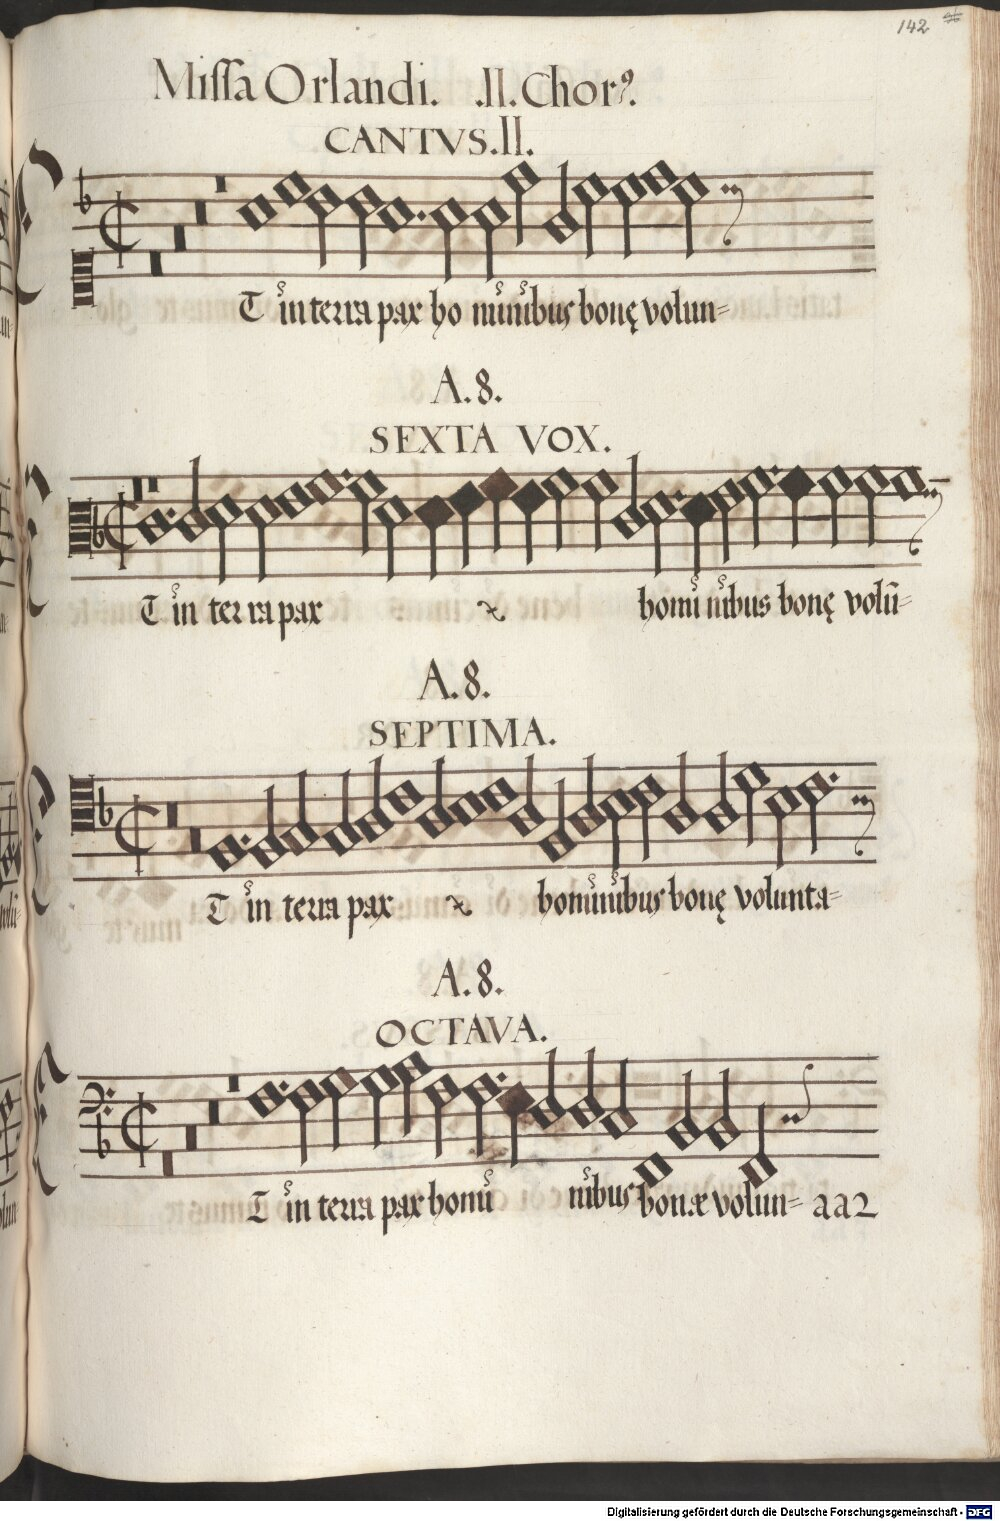 142
Missa Orlandi. .II. Chorꝰ.
CANTVS.II.
T in terra pax ho minibus bonę volun=
A.8.
SEXTA VOX.
T in ter ra pax homi nibus bonę volū=
A.8.
SEPTIMA.
T in terra pax hominibus bonę volunta=
A.8.
OCTAVA.
T in terra pax homi nibus bonæ volun= aa2
Digitalisierung gefördert durch die Deutsche Forschungsgemeinschaft - DFG